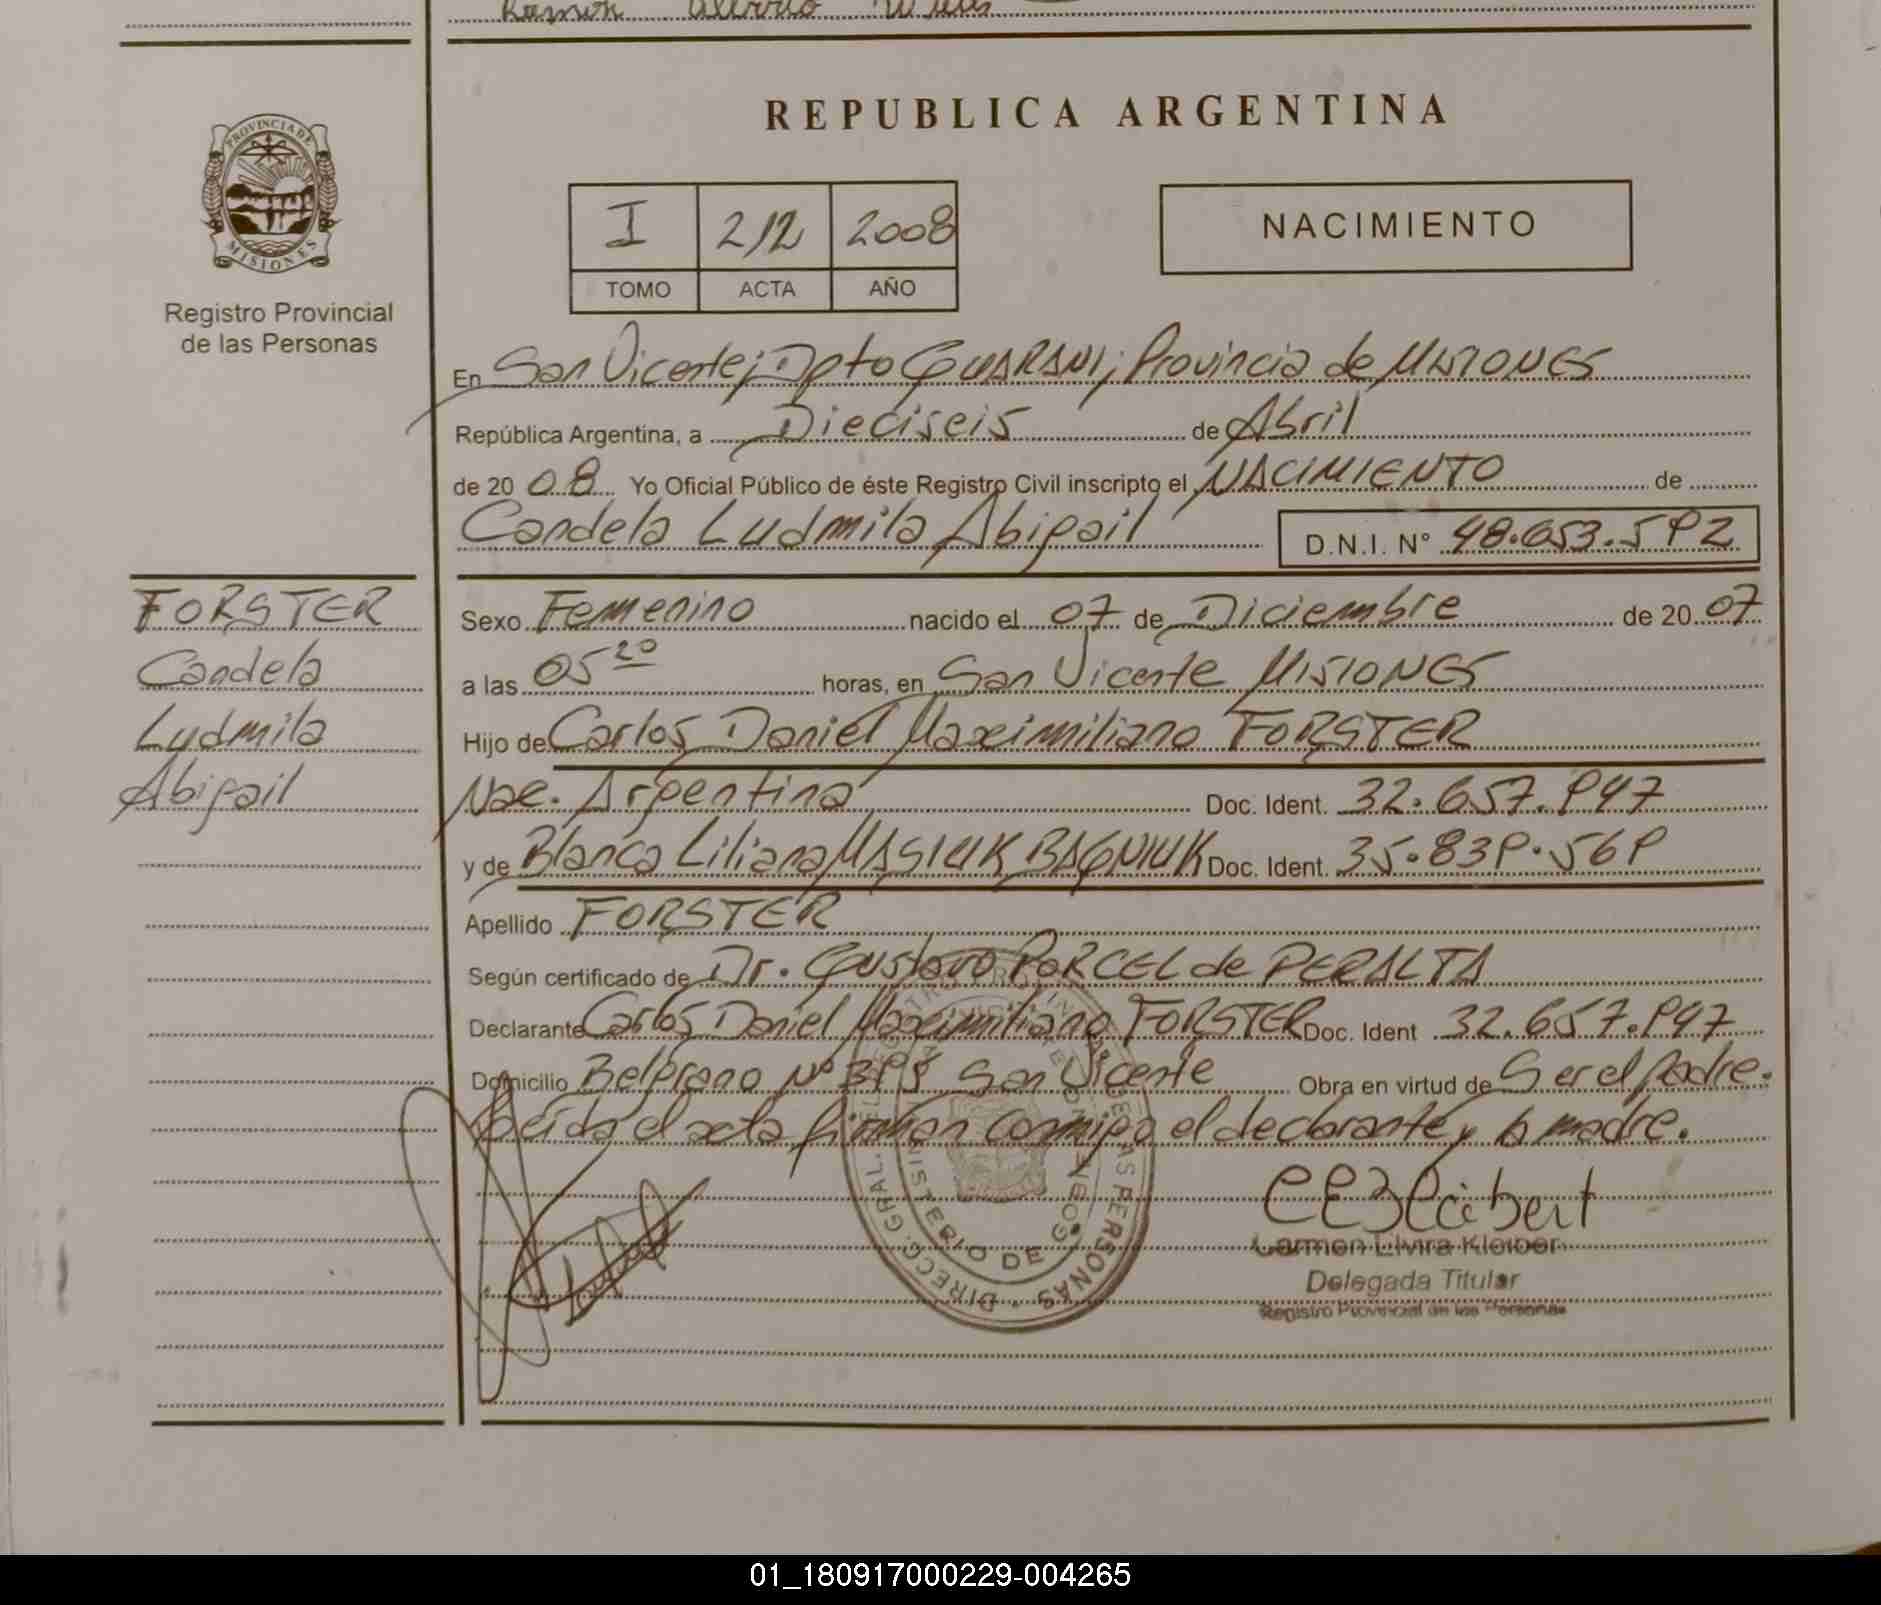 Ramon
REPUBLICA ARGENTINA
PROVINCIA DE
MISIONES
Registro Provincial
de las Personas
I 212 2008
TOMO ACTA AÑO
NACIMIENTO
En San Vicente; Dpto GUARANI; Provincia de MISIONES
República Argentina, a Dieciseis de Abril
de 20 08 Yo Oficial Público de éste Registro Civil inscripto el NACIMIENTO de
Candela Ludmila Abigail D.N.I. N° 48.653.592
FORSTER
Candela
Ludmila
Abigail
Sexo Femenino nacido el 07 de Diciembre de 20 07
a las 05 20 horas, en San Vicente MISIONES
Hijo de Carlos Daniel Maximiliano FORSTER
Nac. Argentina Doc. Ident. 32.657.947
y de Blanca Liliana MASIUK BAGNIUK Doc. Ident. 35.839.569
Apellido FORSTER
Según certificado de Dr. Gustavo PORCEL de PERALTA
Declarante Carlos Daniel Maximiliano FORSTER Doc. Ident 32.657.947
Domicilio Belgrano Nº San Vicente Obra en virtud de Ser el padre.
Leida el acta firman conmigo el declarante y la madre.
DIRECC. GRAL. DEL REGISTRO PROVINCIAL DE LAS PERSONAS
MINISTERIO DE GOBIERNO
Carmen Elvira Kleiber
Delegada Titular
Registro Provincial de las Personas
01_180917000229-004265